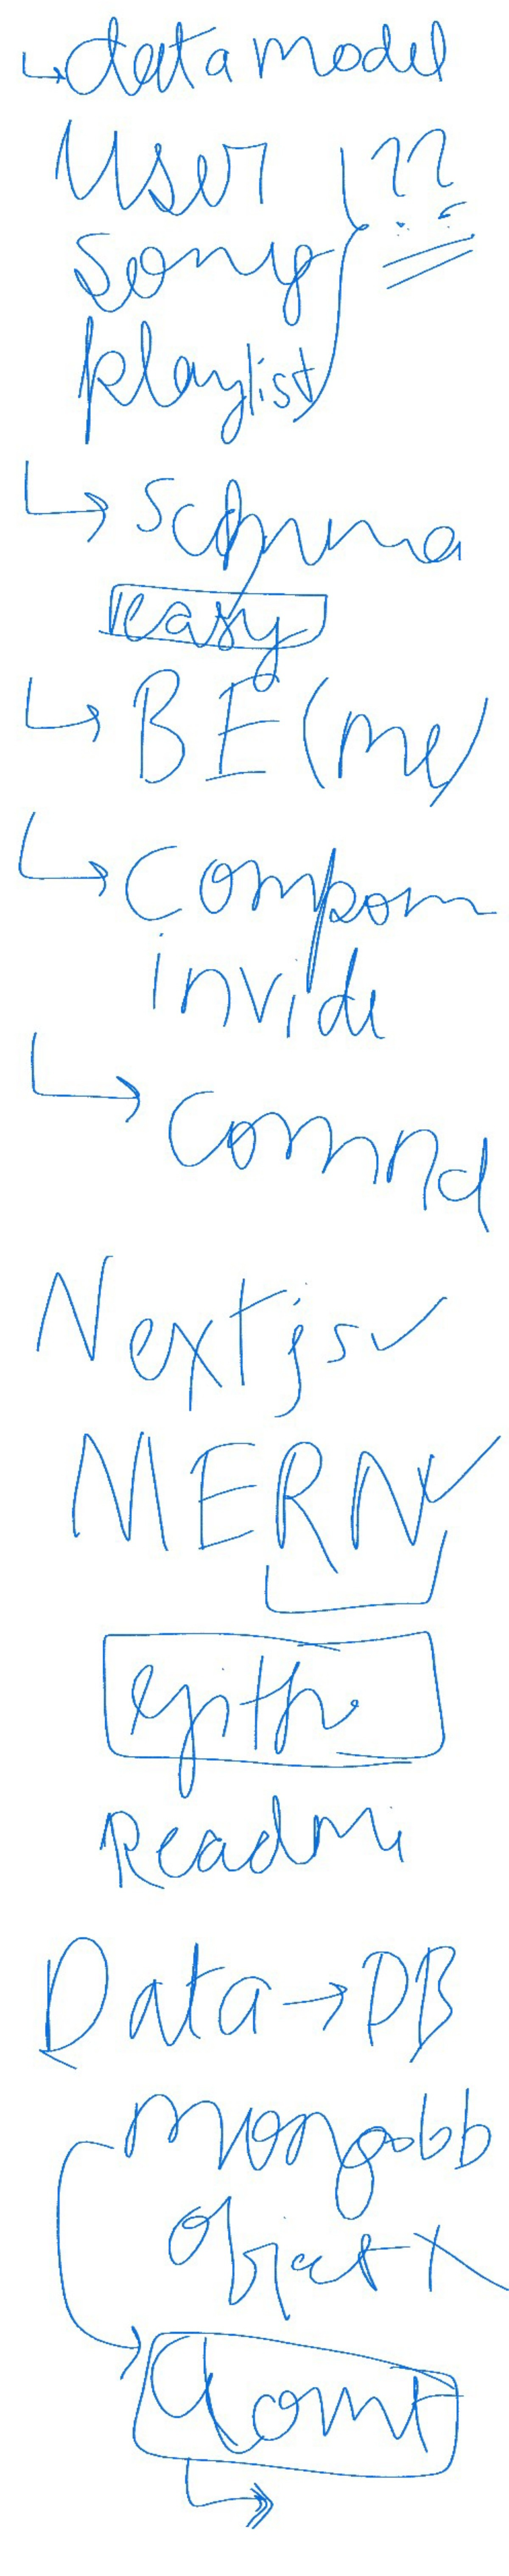 data model
User ??
song
playlist
schma
easy
BE (me)
Compon
invide
Comnd
Nextjs
MERN
gith
Readmi
Data → DB
mongobb
object X